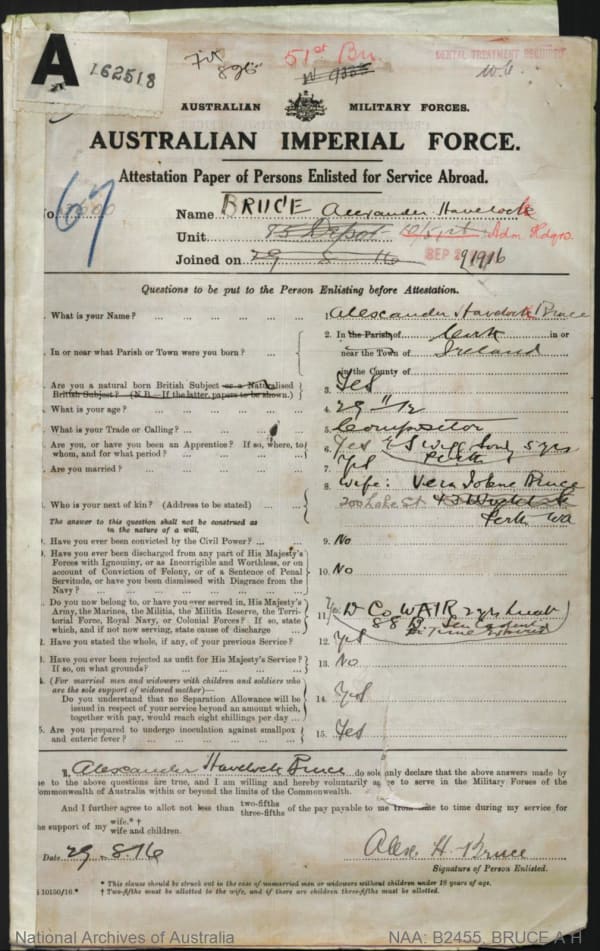 A 162518
51st Bn.
DENTAL TREATMENT
AUSTRALIAN MILITARY FORCES.
AUSTRALIAN IMPERIAL FORCE.
Attestation Paper of Persons Enlisted for Service Abroad.
67
No.
Name BRUCE Alexander Havelock
Unit 75 Depot Adm Hdqrs.
Joined on 29 5 16 SEP 2 9/9/16
Questions to be put to the Person Enlisting before Attestation.
. What is your Name? ... ... ... ... 1. Alexander Havelock Bruce
. In or near what Parish or Town were you born? ... 2. In the Parish of Cork in or
near the Town of Ireland
in the County of
. Are you a natural born British Subject or a Naturalised
British Subject? (N.B.—If the latter, papers to be shown.) 3. Yes
. What is your age? ... ... ... ... 4. 29 11/12
. What is your Trade or Calling? ... ... ... 5. Compositor
. Are you, or have you been an Apprentice? If so, where, to
whom, and for what period? ... ... ... 6. Yes 5 yrs
Perth
. Are you married? ... ... ... ... 7. Yes
. Who is your next of kin? (Address to be stated) ... 8. Wife: Vera Bruce
200 Lake St
Perth WA
The answer to this question shall not be construed as
in the nature of a will.
. Have you ever been convicted by the Civil Power? ... 9. No
. Have you ever been discharged from any part of His Majesty's
Forces with Ignominy, or as Incorrigible and Worthless, or on
account of Conviction of Felony, or of a Sentence of Penal
Servitude, or have you been dismissed with Disgrace from the
Navy? ... ... ... ... 10. No
. Do you now belong to, or have you ever served in, His Majesty's
Army, the Marines, the Militia, the Militia Reserve, the Terri-
torial Force, Royal Navy, or Colonial Forces? If so, state
which, and if not now serving, state cause of discharge ... 11. D Co WAIR 2 yrs
88
Time Expired
. Have you stated the whole, if any, of your previous Service? 12. Yes
. Have you ever been rejected as unfit for His Majesty's Service?
If so, on what grounds? ... ... ... 13. No
. (For married men and widowers with children and soldiers who
are the sole support of widowed mother)—
Do you understand that no Separation Allowance will be
issued in respect of your service beyond an amount which,
together with pay, would reach eight shillings per day ... 14. Yes
5. Are you prepared to undergo inoculation against smallpox
and enteric fever? ... ... ... ... 15. Yes
I, Alexander Havelock Bruce do solemnly declare that the above answers made by
me to the above questions are true, and I am willing and hereby voluntarily agree to serve in the Military Forces of the
Commonwealth of Australia within or beyond the limits of the Commonwealth.
And I further agree to allot not less than two-fifths three-fifths of the pay payable to me from time to time during my service for
the support of my wife.* † wife and children.
Date 29.8.16 Alex. H. Bruce
Signature of Person Enlisted.
* This clause should be struck out in the case of unmarried men or widowers without children under 18 years of age.
† Two-fifths must be allotted to the wife, and if there are children three-fifths must be allotted.
10150/16.*
National Archives of Australia NAA: B2455, BRUCE A H